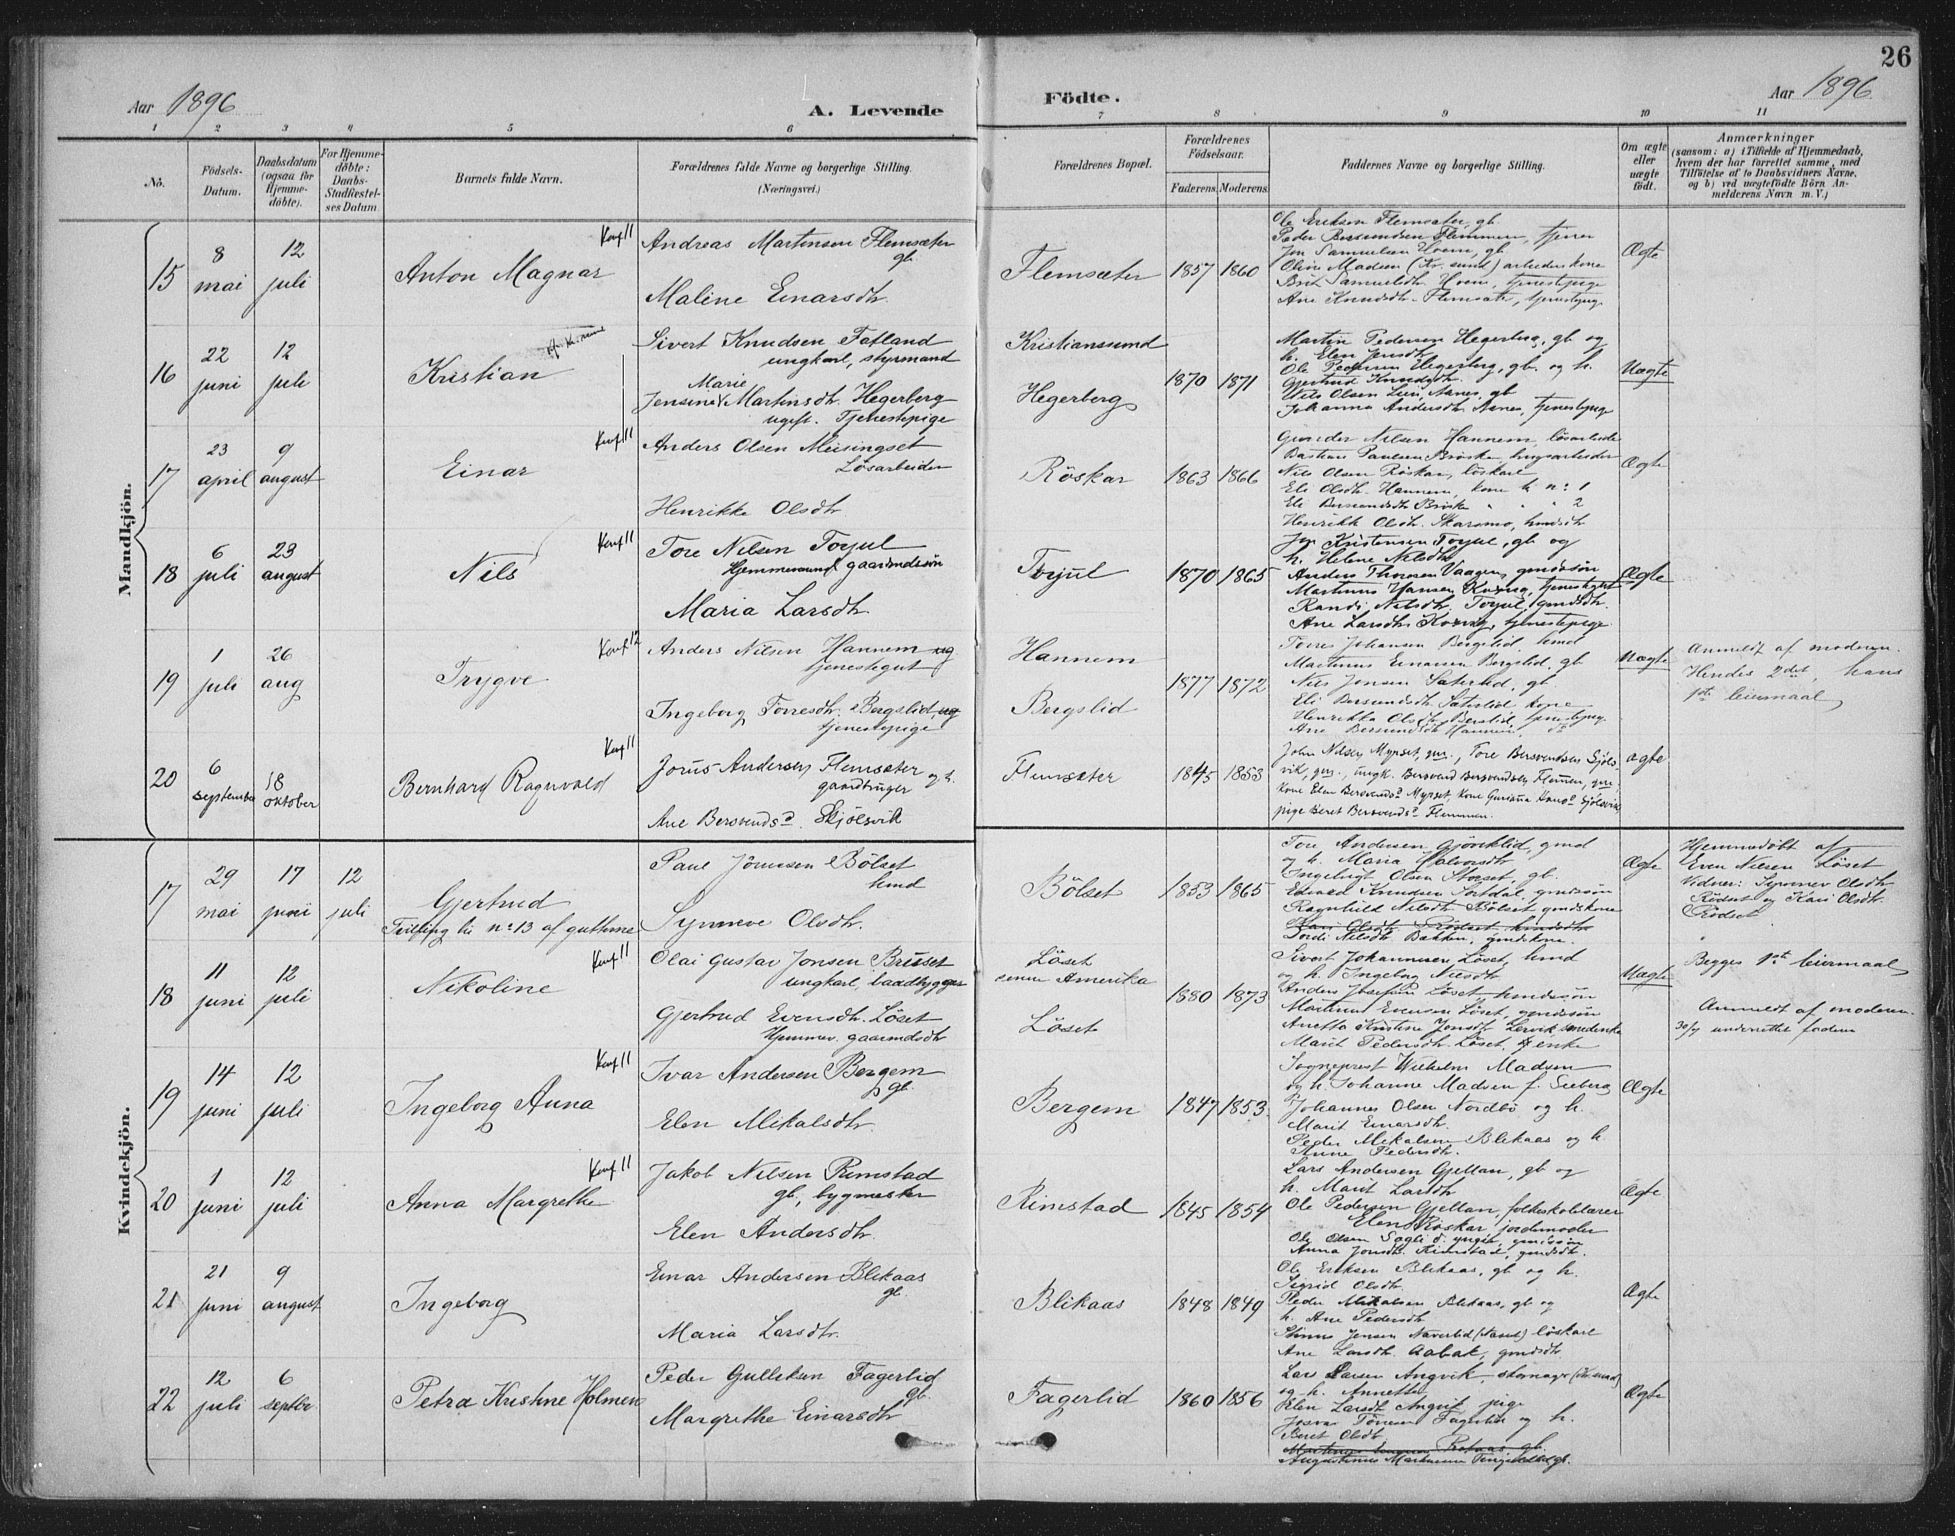 26
Aar 1896
A. Levende
Födte.
Aar 1896
1 2 3 4 5 6 7 8 9 10 11
No.
Födsels-Datum.
Daabsdatum (ogsaa for Hjemme-døbte).
For Hjemme-døbte: Daabs-Stadfæstel-ses Datum
Barnets fulde Navn.
Forældrenes fulde Navne og borgerlige Stilling.
(Næringsvei.)
Forældrenes Bopæl.
Forældrenes Födselsaar.
Faderens. Moderens.
Faddernes Navne og borgerlige Stilling.
Om ægte eller uægte født.
Anmærkninger
(saasom: a) i Tilfælde af Hjemmedaab, hvem der har forrettet samme, med Tilföielse af to Daabsvidners Navne, og b) ved uægtefødte Börn An-melderens Navn m. V.)
Mandkjön.
15
8 mai
12 juli
Anton Magnar
Konf 11
Andreas Martinsen Flemsæter
gb.
Maline Einarsdtr.
Flemsæter
1857 1860
Ole Eriksen Flemsæter, gb.
Peder Bersvendsen Flemmen, tjener
Jon Samuelsen Hoem, gb
Oline Madsen (Kr. sund) arbeiderskone
Brit Samuelsdtr Hoem, tjenestepige
Ane Knudsdtr. Flemsæter, tjenestepig.
Ægte
16
22 juni
12 juli
Kristian
Sivert Knudsen Fatland
ungkarl, styrmand
Marie
Jensine Martinsdtr. Hegerberg
ugift. Tjenestepige
Kristianssund
Hegerberg
1870 1871
Martin Pedersen Hegerberg, gb og
h. Elen Jensdtr.
Ole Pedersen Hegerberg, gb. og h.
Gjertrud Knudsdtr.
Nils Olsen Lien, Aanes, gb
Johanna Andersdtr. Aanes, tjenestepige
Uægte
17
23 april
9 august
Einar
Konf 11
Anders Olsen Meisingset
Løsarbeider
Henrikke Olsdtr
Röskar
1863 1866
Gunder Nilsen Hannem, løsarbeide
Bastian Paulsen Brøske, brugsarbeider
Nils Olsen Röskar, löskarl
Eli Olsdtr. Hannem, kone ti n: 1
Eli Bersvendsdtr Brøske " " " 2
Henrikk Olsdtr. Skaromo, hmdsdtr
Ægte
18
6 juli
23 august
Nils
Konf 11
Tore Nilsen Torjul
Hjemmeværend gaarmdssön
Maria Larsdtr.
Torjul
1870 1865
Jon Kristensen Torjul, gb og
h. Helene Nilsdtr
Anders Thomsen Vaagen, gmdssön
Martinus Hansen Kvæng, tjenestegut
Randi Nilsdtr. Torjul, gmdsdtr.
Ane Larsdtr Kvæng, tjenestepige
Ægte
19
1 juli
26 aug
Trygve
Konf 12
Anders Nilsen Hannem ug
tjenestegut
Ingeborg Torresdtr. Bergslid, ug
tjenestepige
Hannem
Bergslid
1877 1872
Torres Johansen Bergslid, hmd
Martinus Einarsen Bergslid, gb
Nils Jensen Sæterlid, gb.
Eli Bersvendsdtr Sæterlid kone
Henrikka Olsdtr. Bergslid, tjenestepig.
Ane Bersvendsdtr Hannem, do
Uægte
Anmeldt af moderen.
Hendes 2det, hans
1ste leiermaal
20
6 september
18 oktober
Bernhard Ragnvald
Konf 11
Jorus Andersen Flemsæter og h.
gaardbruger
Ane Bersvendsd. Skjölsvik
Flemsæter
1845 1853
John Nilsen Myrset, gm., Tore Bersvendsen Sjöls-
vik, gm., ungk. Bersvend Bersvendsen Flemmen, gm.
kone Elen Bersvendsd. Myrset, kone Gurianna Hansd Sjölsvik
pige Beret Bersvendsd. Flemmen.
ægte
Kvindekjön.
17
29 mai
17 juni
12 juli
Gjertrud
Tvilling ti n: 13 af guttene
Paul Jörensen Bölset
hmd
Synneve Olsdtr.
Bölset
1853 1865
Tore Andersen Gjöviklid, gmd
og h. Maria Halvorsdtr
Ingebrigt Olsen Storset, gb.
Edvard Knudsen Sortdal, gmdssön
Ragnhild Nilsdtr Bölset, gmdskone
Kari Olsdtr. Rödset hmdsdtr
Jordi Nilsdtr. Bakken, gmdskone.
Ægte
Hjemmedöbt af
Even Nilsen Löset
Vidner: Synnev Olsdtr.
Rödset og Kari Olsdtr.
Rödset
18
11 juni
12 juli
Nikoline
Konf 11
Olai Gustav Jonsen Bruset
ungkarl, baadbygger
Gjertrud Evensdtr. Löset
Hjemmev. gaarmdsdtr
Löset
senere Amerika
Löset
1880 1873
Sivert Johannesen Löset, hmd
og h. Ingeborg Nilsdtr
Anders Josefsen Löset hmdssön
Martinus Evensen Löset, gmdssön
Anetta Kristine Jonsdtr Lervik smedenke
Marit Pedersdtr. Löset, enke
Uægte
Begges 1ste leiermaal
Anmeldt af moderen.
30/7 underrettet faderen
19
14 juni
12 juli
Ingeborg Anna
Konf 11
Ivar Andersen Bergem
gb.
Elen Mikalsdtr.
Bergem
1847 1853.
Sogneprest Wilhelm Madsen
og h. Johanne Madsen f. Seeberg
Johannes Olsen Nordbö og h.
Marit Einarsdtr.
Peder Mikalsen Blikaas og h.
Anne Pedersdtr.
Ægte
20
1 juni
12 juli
Anna Margrethe
Konf 11
Jakob Nilsen Rimstad
gb, bygmester
Elen Andersdtr.
Rimstad
1845 1854
Lars Andersen Gjellan, gb og
h. Marit Larsdtr
Ole Pedersen Gjellan, folkeskolelærer
Elen Röskar, jordemoder
Ole Olsen Sogli d. yngre, gmdssön
Anna Jonsdtr. Rimstad, gmdsdtr.
Ægte
21
21 juni
9 august
Ingeborg
Einar Andersen Blikaas
gb.
Maria Larsdtr.
Blikaas
1848 1849
Ole Eriksen Blikaas, gb og h.
Sigrid Olsdtr.
Peder Mikalsen Blikaas, gb og
h. Ane Pedersdtr
Jensen Naverlid löskarl
Ane Larsdtr. Aabak, gmdsdtr
Ægte
22
12 juli
6 septbr
Petra Kristine Holmen
Peder Gulleksen Fagerlid
gb.
Margrethe Einarsdtr.
Fagerlid
1860 1856
Lars Larsen Angvik, (Kr. sund)
og h. Annette
Elen Larsdtr Angvik pige
Josvar Tönsen Fagerlid og h.
Beret Olsdtr.
Augustinus Martinsen gb.
Ægte